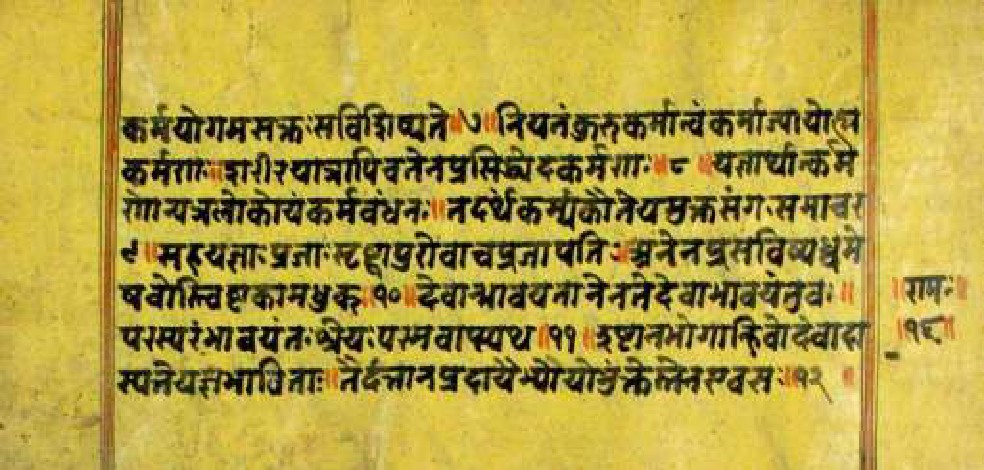 कर्मयोगमसक्तःसविशिष्यते॥७॥नियतंकुरुकर्मात्वंकर्मज्यायोह्य
कर्मणः॥शरीरयात्रापिचतेनप्रसिद्ध्येदकर्मणः॥८॥यज्ञार्थात्कर्म
णोन्यत्रलोकोयंकर्मबंधनः॥तदर्थंकर्मकौंतेयमुक्तसंगःसमाचर
९॥सहयज्ञाःप्रजाःसृष्ट्वापुरोवाचप्रजापतिः॥अनेनप्रसविष्यध्वमे
षवोस्त्विष्टकामधुक्॥१०॥देवान्भावयतानेनतेदेवाभावयंतुवः॥
परस्परंभावयंतःश्रेयःपरमवाप्स्यथ॥११॥इष्टान्भोगान्हिवोदेवादा
स्यंतेयज्ञभाविताः॥तैर्दत्तानप्रदायैभ्योयोभुंक्तेस्तेनएवसः॥१२॥
॥रामः॥
॥१८॥